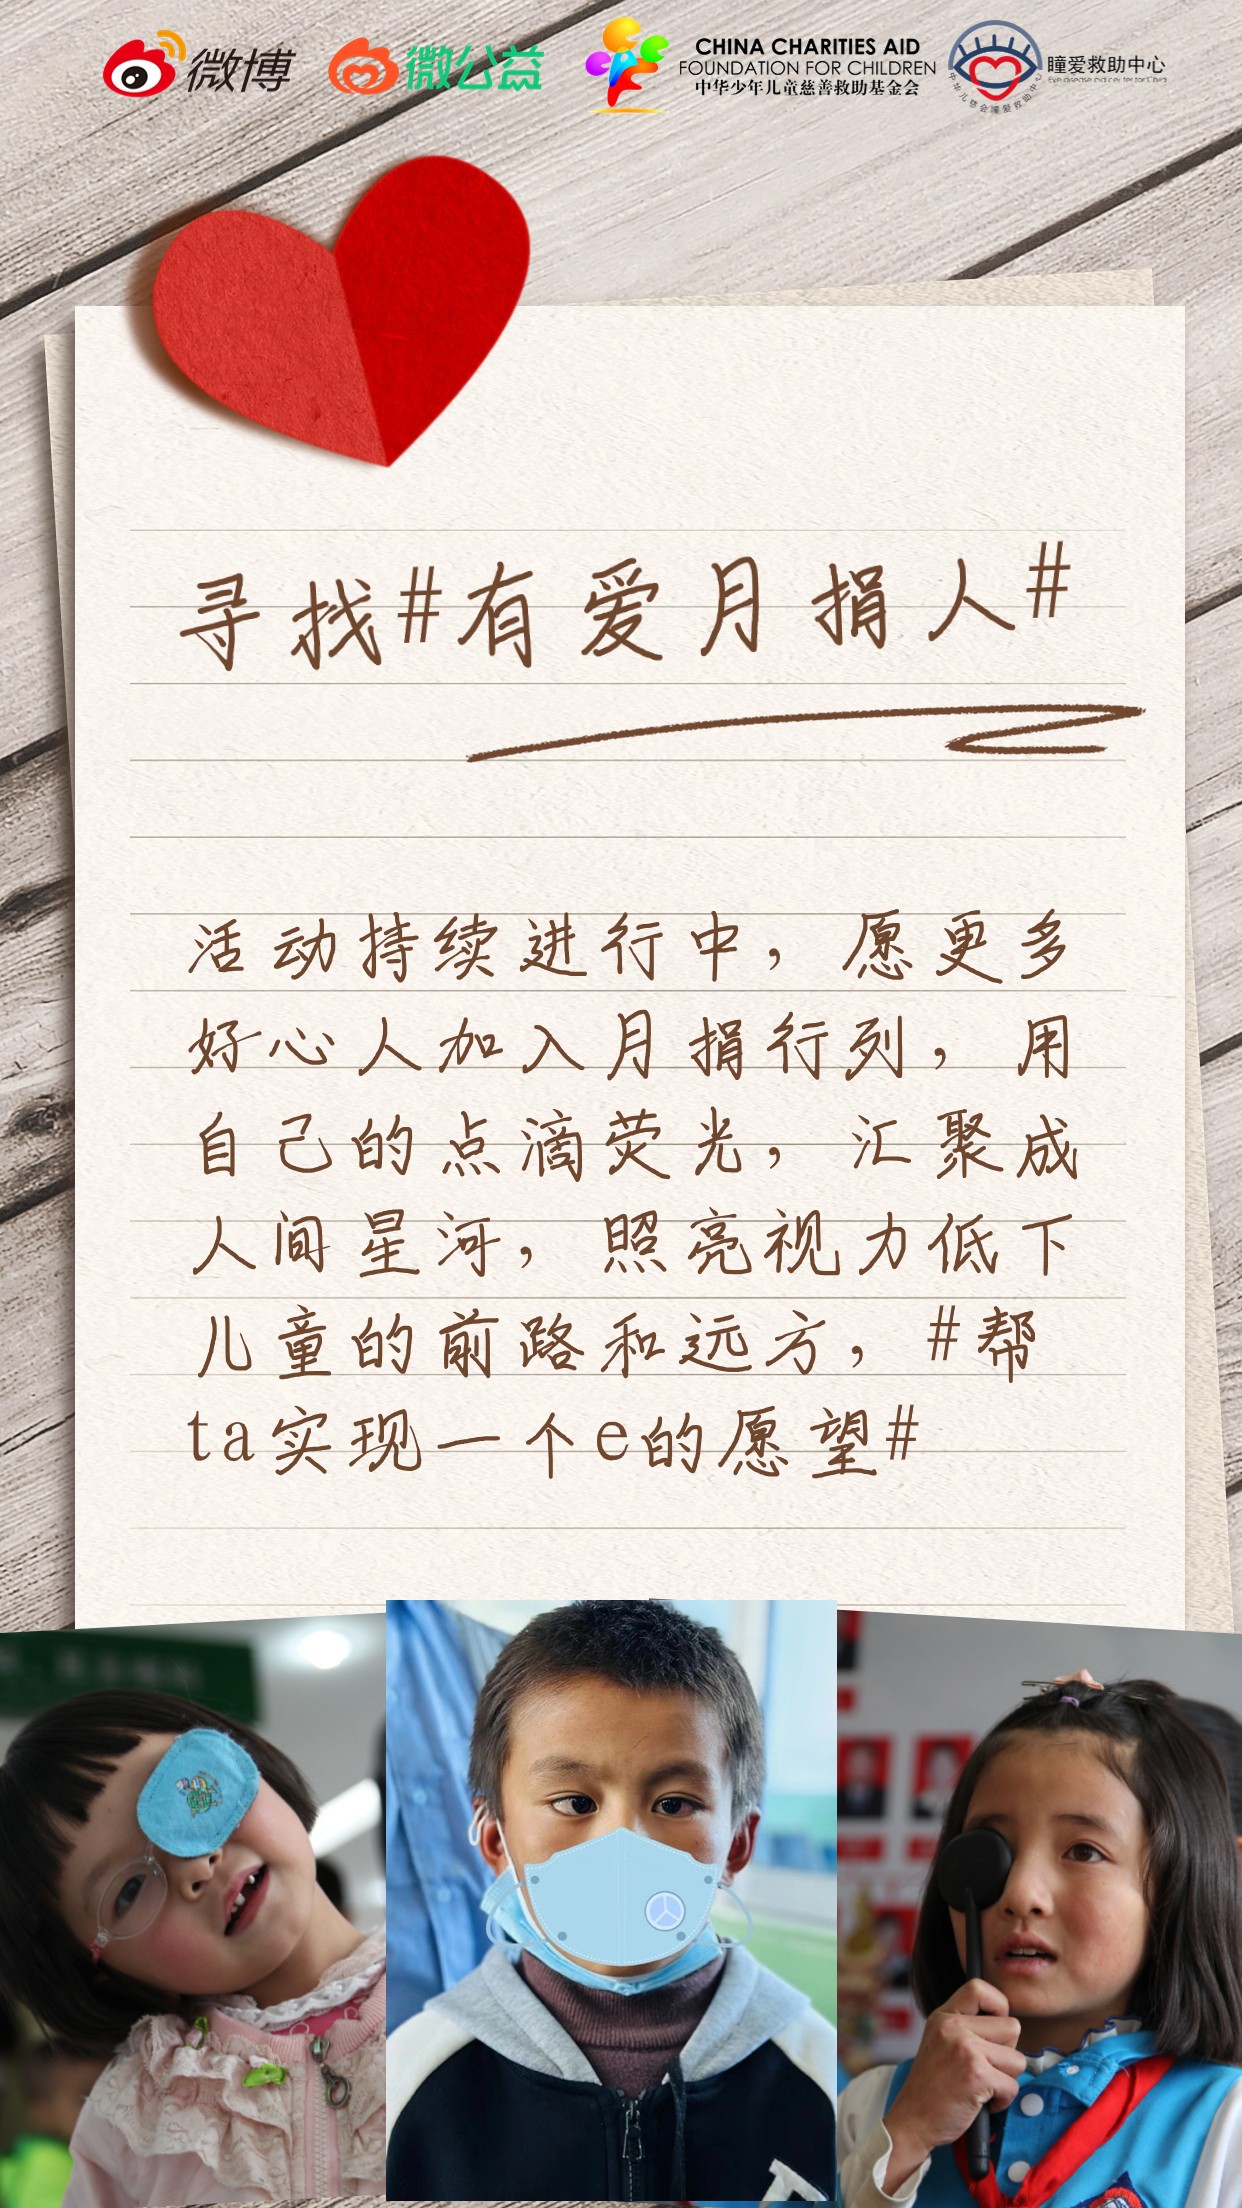 微博 微公益 CHINA CHARITIES AID 瞳爱救助中心
FOUNDATION FOR CHILDREN
中华少年儿童慈善救助基金会
寻找#有爱月捐人#
活动持续进行中，愿更多
好心人加入月捐行列，用
自己的点滴荧光，汇聚成
人间星河，照亮视力低下
儿童的前路和远方，#帮
ta实现一个e的愿望#